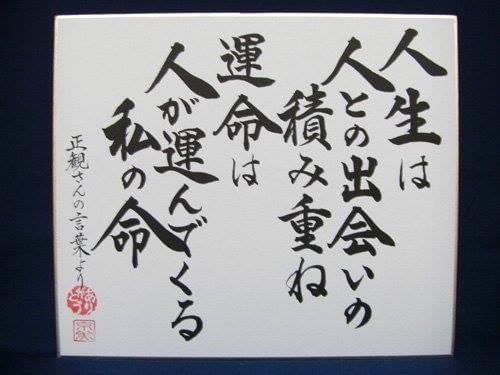 人生は
人との出会いの
積み重ね
運命は
人が運んでくる
私の命
正観さんの言葉より
ありがとう